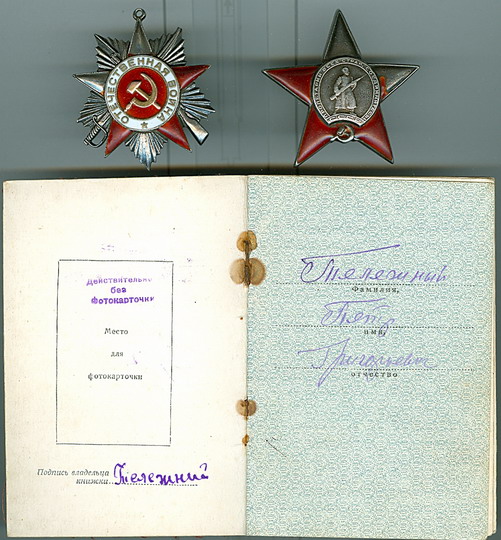 ОТЕЧЕСТВЕННАЯ ВОЙНА
ПРОЛЕТАРИИ ВСЕХ СТРАН, СОЕДИНЯЙТЕСЬ!
Действительно
без
фотокарточки
Место
для
фотокарточки
Подпись владельца
книжки Тележний
Тележный
Фамилия,
Петр
имя,
Григорьевич
отчество